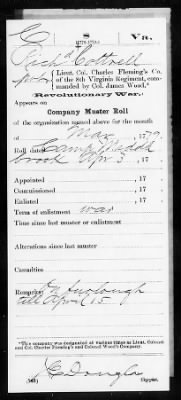 C 8 Va.
Rich'd Cottrell
Lieut. Col. Charles Fleming's Co.
of the 8th Virginia Regiment, commanded by Col. James Wood.*
Revolutionary War.
Appears on
Company Muster Roll
of the organization named above for the month
of Mar, 1779.
Roll dated Camp Middle
brook Apr 3, 17
Appointed 17
Commissioned 17
Enlisted 17
Term of enlistment war
Time since last muster or enlistment
Alterations since last muster
Casualties
Remarks: On furlough
till April 15
*This company was designated at various times as Lieut. Colonel and Col. Charles Fleming's and Colonel Wood's Company.
Copyist.